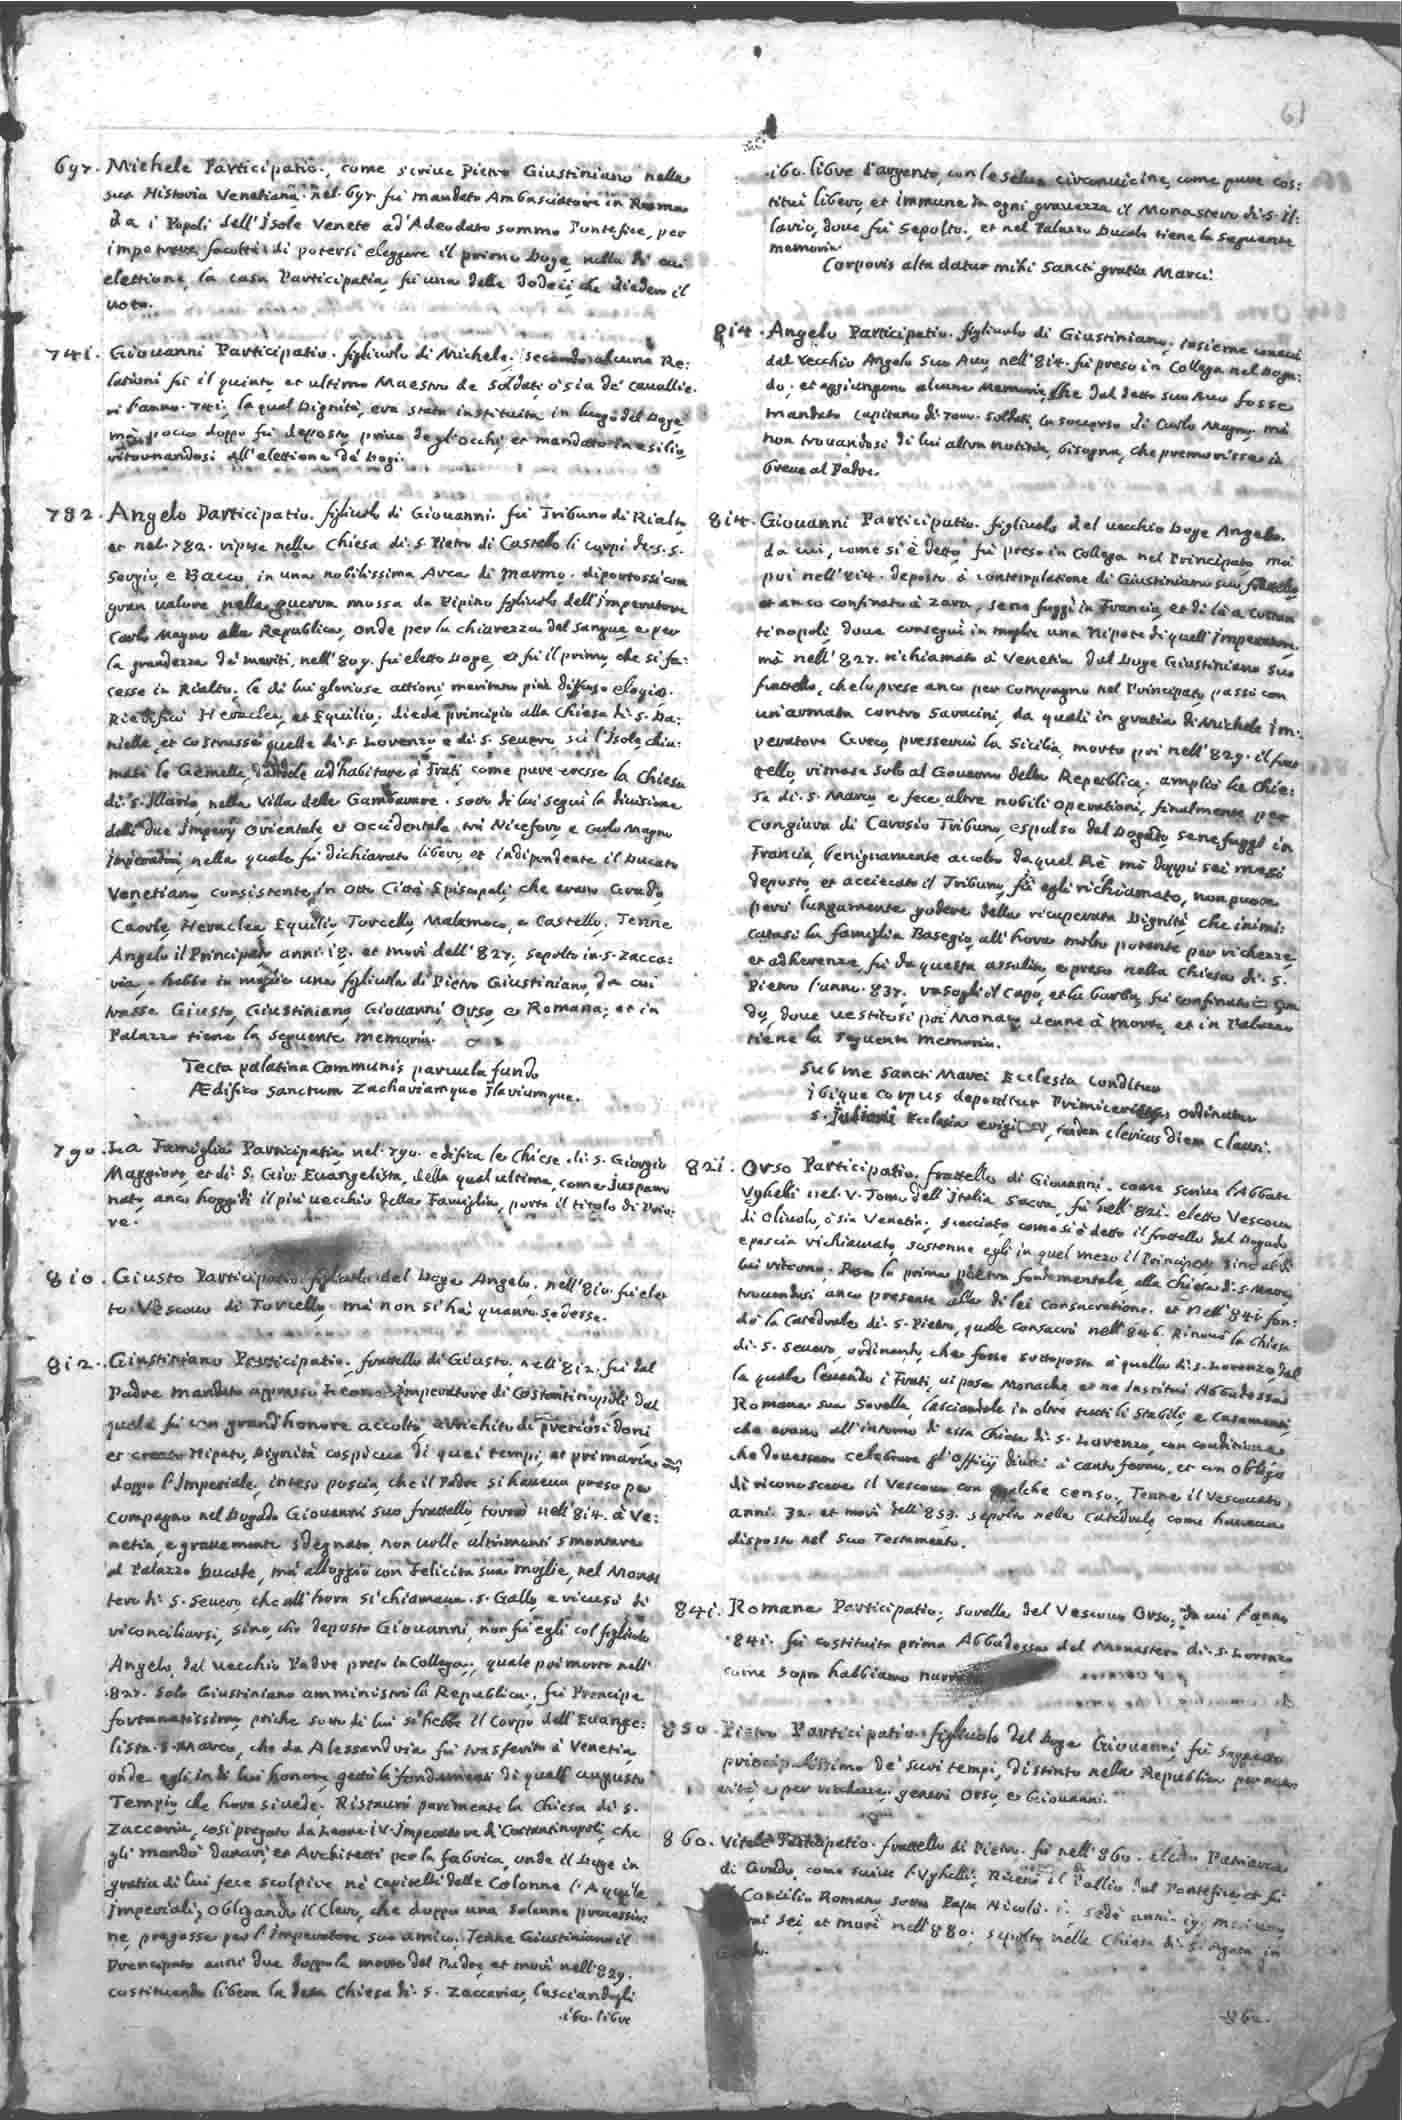 61
697. Michele Participatio, come scrive Pietro Giustiniano nella
sua Historia Venetiana nel 697 fu mandato Ambasciatore in Roma
da i Popoli dell'Isole Venete ad Adeodato sommo Pontefice, per
impetrare facoltà di potersi eleggere il primo Doge, nella di cui
elettione, la casa Participatia, fu una delle dodeci, che diedero il
voto.
741. Giovanni Participatio figliuolo di Michele, secondo alcune Re:
lationi fu il quinto, et ultimo Maestro de soldati, ò sia de cavallie:
ri l'anno 741, la qual Dignità, era stata instituita in luogo del Doge
mà poco doppo fù deposto, privo degl'occhi, et mandato in esilio,
ritornandosi all'elettione de Dogi.
782. Angelo Participatio figliuolo di Giovanni. fu Tribuno di Rialto
et nel 782. ripose nella Chiesa di S. Pietro di Castello li corpi de S.S.
Sergio, e Bacco, in una nobilissima Arca di marmo. diportossi con
gran valore nella guerra mossa da Pipino figliuolo dell'Imperatore
Carlo Magno alla Republica, onde per la chiarezza del sangue, e per
la grandezza de meriti, nell'809. fu eletto Doge, et fu il primo, che si fa:
cesse in Rialto. le di lui gloriose attioni, meritano più diffuso elogio.
Riedificò Heraclea, et Equilio. diede principio alla Chiesa di S. Da:
nielle, et costrusse quelle di S. Lorenzo, e di S. Severo sù l'Isole chia:
mate le Gemelle, dandole ad habitare à Frati, come pure eresse la Chiesa
di S. Illario, nella Villa delle Gambarare. sotto di lui seguì la divisione
delli due Imperij Orientale et Occidentale trà Niceforo, e Carlo Magno
Imperatori, nella quale fu dichiarato libero, et indipendente il Ducato
Venetiano consistente, in otto Città Episcopali, che erano Grado,
Caorle, Heraclea Equilio, Torcello, Malamoco, e Castello. Tenne
Angelo il Principato anni 18. et morì dell'827. sepolto in S. Zacca:
ria, hebbe in moglie una figliuola di Pietro Giustiniano, da cui
trasse Giusto, Giustiniano, Giovanni, Orso, e Romana; et in
Palazzo tiene la seguente memoria.
Tecta palatina Communis parvula fundo
Ædifico sanctum Zachariamque Ilariumque.
790. La Famiglia Participatia nel 790. edifica le Chiese di S. Giorgio
Maggiore, et di S. Gio: Evangelista, della qual ultima, come Juspatro
nato, anco hoggidì il più vecchio della Famiglia, porta il titolo di Prio:
re.
810. Giusto Participatio figliuolo del Doge Angelo, nell'810. fu elet
to Vescovo di Torcello, mà non si hà quanto sedesse.
812. Giustiniano Participatio, fratello di Giusto, nell'812. fu dal
Padre mandato appresso Leone Imperatore di Costantinopoli, dal
quale fu con grand'honore accolto, arrichito di pretiosi doni,
et creato Hipato, Dignità cospicua di quei tempi, et primaria
doppo l'Imperiale, inteso poscia, che il Padre si haveva preso per
compagno nel Dogado Giovanni suo fratello, tornò nell'814. à Ve:
netia, e gravemente sdegnato, non volle altrimenti smontare
al Palazzo Ducale, mà alloggiò con Felicita sua moglie, nel Monas
tero di S. Severo, che all'hora si chiamava S. Gallo, e ricusò di
riconciliarsi, sino, che deposto Giovanni, non fu egli col figliuolo
Angelo, dal vecchio Padre preso in Collega, quale poi morto nell'
827. solo Giustiniano amministrò la Republica. fu Prencipe
fortunatissimo, poiche sotto di lui si hebbe il Corpo dell'Evange:
lista S. Marco, che da Alessandria fu trasferito à Venetia,
onde egli in di lui honore gettò li fondamenti di quell'augusto
Tempio, che hora si vede. Ristaurò parimente la Chiesa di S.
Zaccaria, così pregato da Leone IV. Imperatore di Costantinopoli, che
gli mandò danari, et Architetti per la fabrica, onde il Doge in
gratia di lui fece scolpire nè Capitelli delle Colonne l'Aquile
Imperiali, obligando il Clero, che doppo una solenne processio:
ne, pregasse per l'Imperatore suo amico. Tenne Giustiniano il
Prencipato anni due doppo la morte del Padre, et morì nell'829.
costituendo libera la detta Chiesa di S. Zaccaria, lasciandogli
160. libre
160. libre d'argento, con le selve circonvicine, come pure cos:
tituì libero, et immune da ogni gravezza il Monastero di S. Il:
lario, dove fu sepolto, et nel Palazzo Ducale tiene la seguente
memoria
Corporis alta datur mihi sancti gratia Marci.
814. Angelo Participatio figliuolo di Giustiniano, insieme
dal vecchio Angelo suo Avo, nell'814. fu preso in Collega nel Doga:
do, et aggiungono alcune memorie, che dal detto suo Avo fosse
mandato capitano di soldati in soccorso di Carlo Magno. mà
non trovandosi di lui altra notitia, bisogna, che premorisse in
breve al Padre.
814. Giovanni Participatio figliuolo del vecchio Doge Angelo.
da cui, come si è detto, fu preso in Collega nel Principato, mà
poi nell'814. deposto à contemplatione di Giustiniano suo fratello,
et anco confinato à Zara, se ne fuggì in Francia, et di là a Costan
tinopoli, dove conseguì in moglie una Nipote di quell'Imperatore.
mà nell'827. richiamato à Venetia dal Doge Giustiniano suo
fratello, che lo prese anco per compagno nel Principato, passò con
un'armata contro Saracini, da quali in gratia di Michele Im:
peratore Greco, preservò la Sicilia, morto poi nell'829. il fra
tello, rimase solo al Governo della Republica. ampliò la Chie:
sa di S. Marco, e fece altre nobili operationi, finalmente per
congiura di Carosio Tribuno, espulso dal Dogado, se ne fuggì in
Francia, benignamente accolto da quel Rè, mà doppo sei mesi
deposto, et acciecato il Tribuno, fù egli richiamato, non puote
però lungamente godere della ricuperata Dignità, che inimi:
catasi la famiglia Basegio, all'hora molto potente per richezze,
et adherenze, fù da questa assalito, e preso nella Chiesa di S.
Pietro l'anno 837. rasogli il capo, et la barba, fù confinato à Gra
do, dove vestitosi poi Monaco, venne à morte, et in Palazzo
tiene la seguente memoria.
Sub me Sancti Marci Ecclesia conditur
ibique corpus deponitur Primicerius ordinatur
S. Juliani Ecclesia erigitur, tandem clericus diem clausi.
821. Orso Participatio, fratello di Giovanni, come scrive l'Abbate
Vghelli nel V. Tomo dell'Italia sacra, fù nell'821. eletto Vescovo
di Olivolo, ò sia Venetia, scacciato come si è detto il fratello dal Dogado
e poscia richiamato, sostenne egli in quel mezo il Principato sino al di
lui ritorno. Pose la prima pietra fondamentale, alla Chiesa di S. Marco,
trovandosi anco presente alla di lei consacratione. et nell'841. fon:
dò la Catedrale di S. Pietro, quale consacrò nell'846. Rinovò la Chiesa
di S. Severo, ordinando, che fosse sottoposta à quella di S. Lorenzo, dal
la quale levando i Frati, vi pose Monache et ne Instituì Abbadessa
Romana sua Sorella, lasciandole in oltre tutti li Stabili, e Casamenti,
che erano all'intorno di essa Chiesa di S. Lorenzo, con conditione
che dovessero celebrare gl'Officij divini à canto fermo, et con obligo
di riconoscere il Vescovo con qualche censo. Tenne il Vescovato
anni 32. et morì dell'853. sepolto nella Catedrale, come haveva
disposto nel suo Testamento.
841. Romana Participatio, sorella del Vescovo Orso, da cui l'anno
841. fù costituita prima Abbadessa del Monastero di S. Lorenzo
come sopra habbiamo narrato
850. Pietro Participatio figliuolo del Doge Giovanni, fù soggetto
principalissimo de suoi tempi, distinto nella Republica per
e per richezze. generò Orso, e Giovanni.
860. Vitale Participatio fratello di Pietro. fù nell'860. eletto Patriarca
di Grado, come scrive l'Vghelli, Ricevè il Pallio dal Pontefice, et fù
Concilio Romano, sotto Papa Nicolò. i. sedè anni 19. mesi
sei, et morì nell'880. sepolto nella Chiesa di S. Agata in
860.